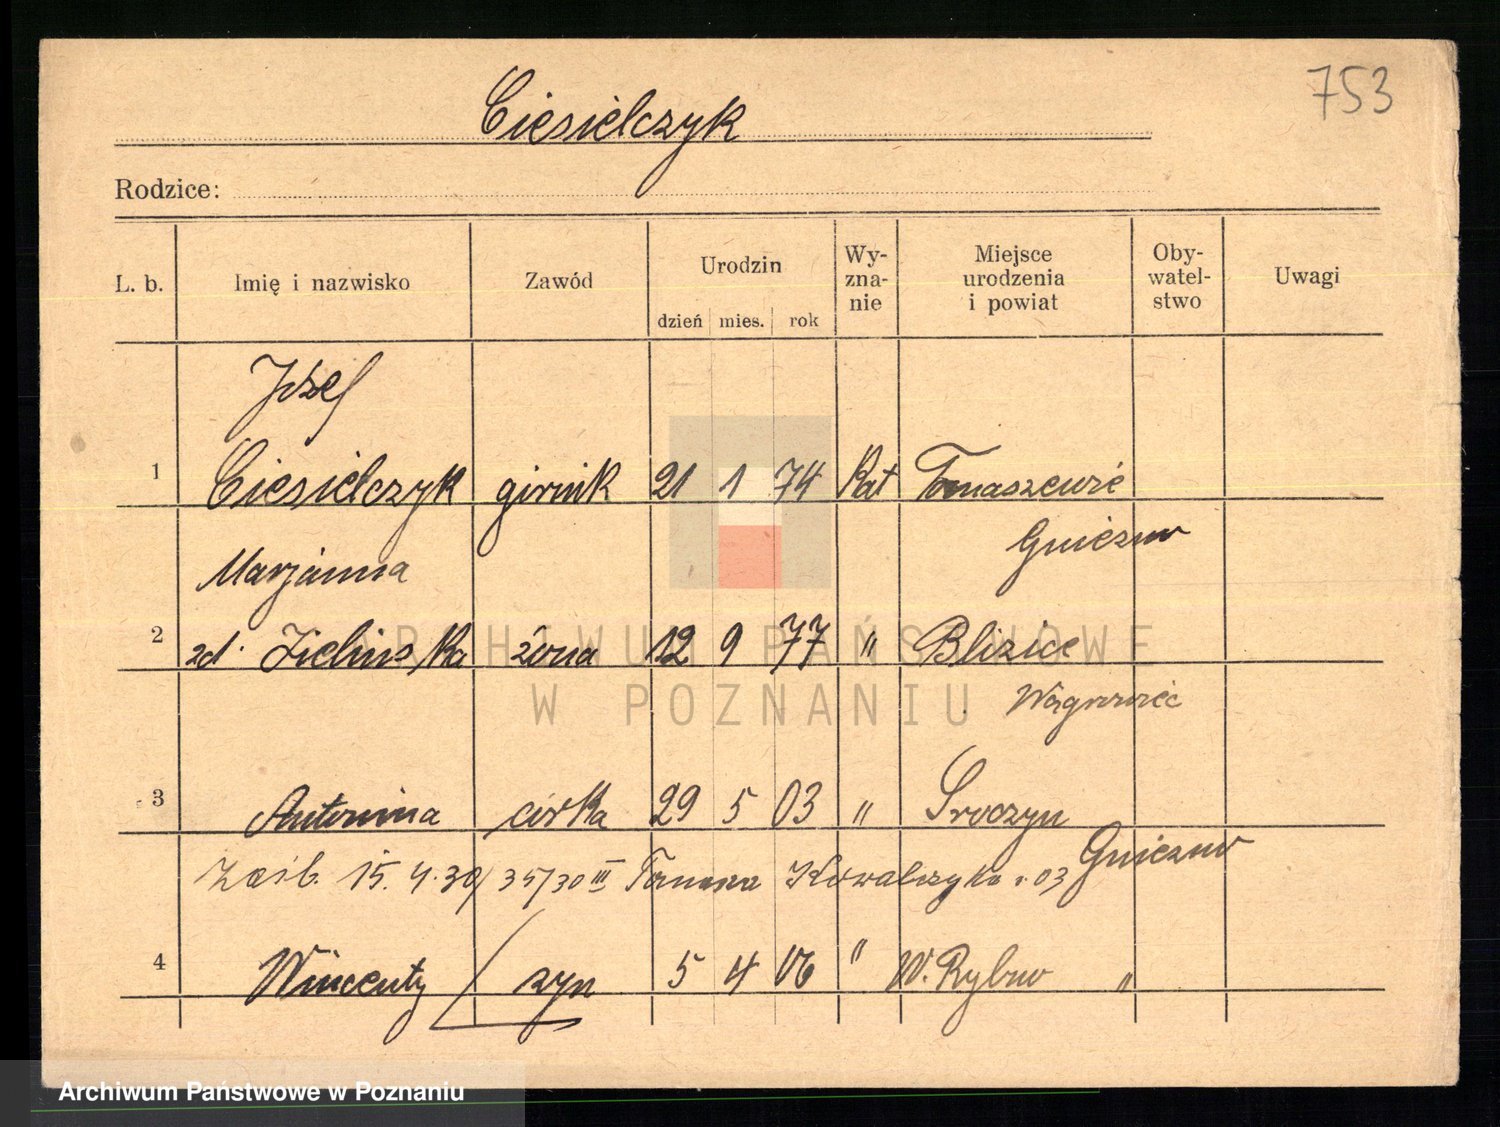 753
Ciesielczyk
Rodzice:
L. b. Imię i nazwisko Zawód Urodzin dzień mies. rok Wy-zna-nie Miejsce urodzenia i powiat Oby-watel-stwo Uwagi
Józef
1 Ciesielczyk 21 1 74 Kat Tomaszewie
Gniezno
Marjanna
2 zd. Zielińska żona 12 9 77 " Blizice
Wągrowiec
3 Antonina córka 29 5 03 " Sroczyn
Gniezno
Zaśb. 15. 4. 30 / 35/30 III Tomasz Kowalczyk 03
4 Wincenty syn 5 4 06 " W. Rybno "
ARCHIWUM PAŃSTWOWE
W POZNANIU
Archiwum Państwowe w Poznaniu